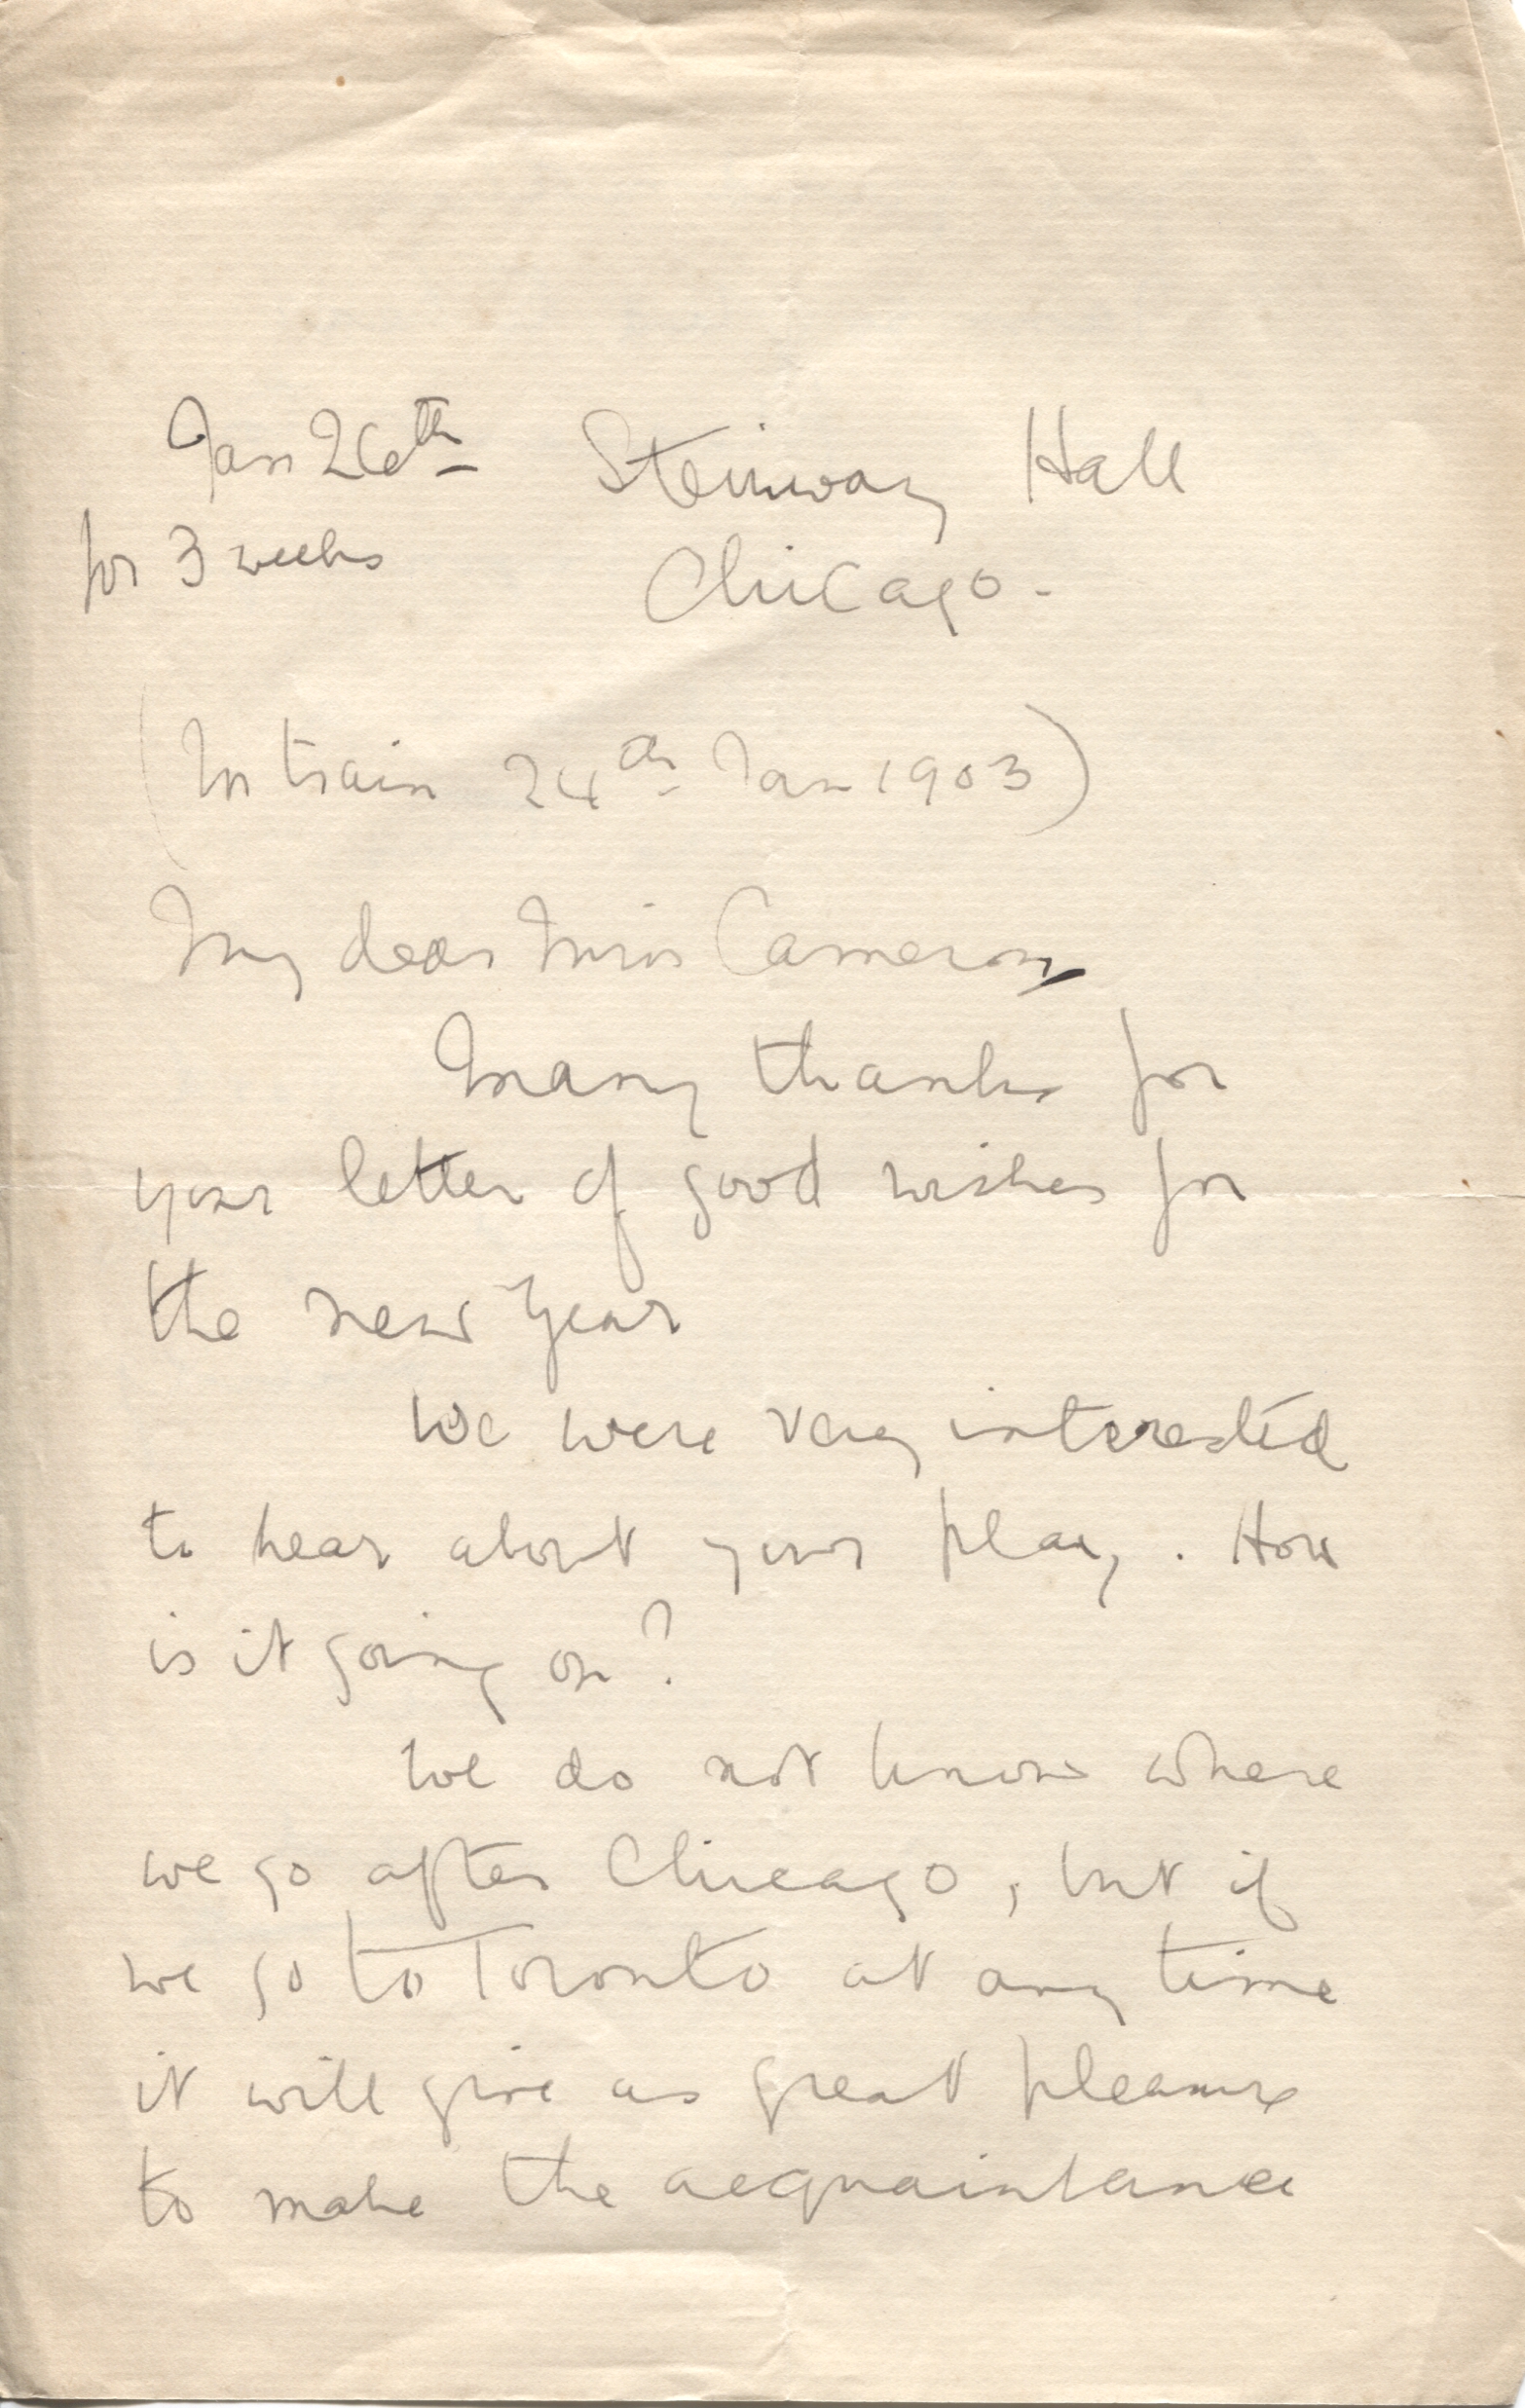 Jan 26th Steinway Hall
for 3 weeks Chicago.
(In train 24th Jan 1903)
My dear Miss Cameron
Many thanks for
your letter of good wishes for
the new Year
We were very interested
to hear about your play. How
is it going on?
We do not know where
we go after Chicago, but if
we go to Toronto at any time
it will give us great pleasure
to make the acquaintance